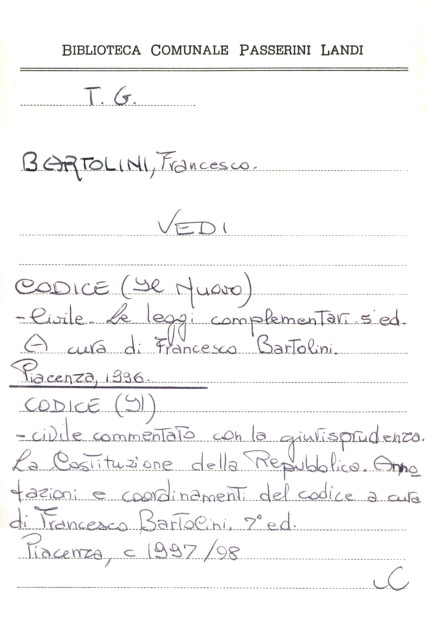 BIBLIOTECA COMUNALE PASSERINI LANDI
T. G.
BARTOLINI, Francesco.
VEDI
CODICE (Il Nuovo)
- Civile. Le leggi complementari. 5ª ed.
A cura di Francesco Bartolini.
Piacenza, 1996.
CODICE (Il)
- civile commentato con la giurisprudenza.
La Costituzione della Repubblica. Anno
tazioni e coordinamenti del codice a cura
di Francesco Bartolini. 7ª ed.
Piacenza, c 1997/98